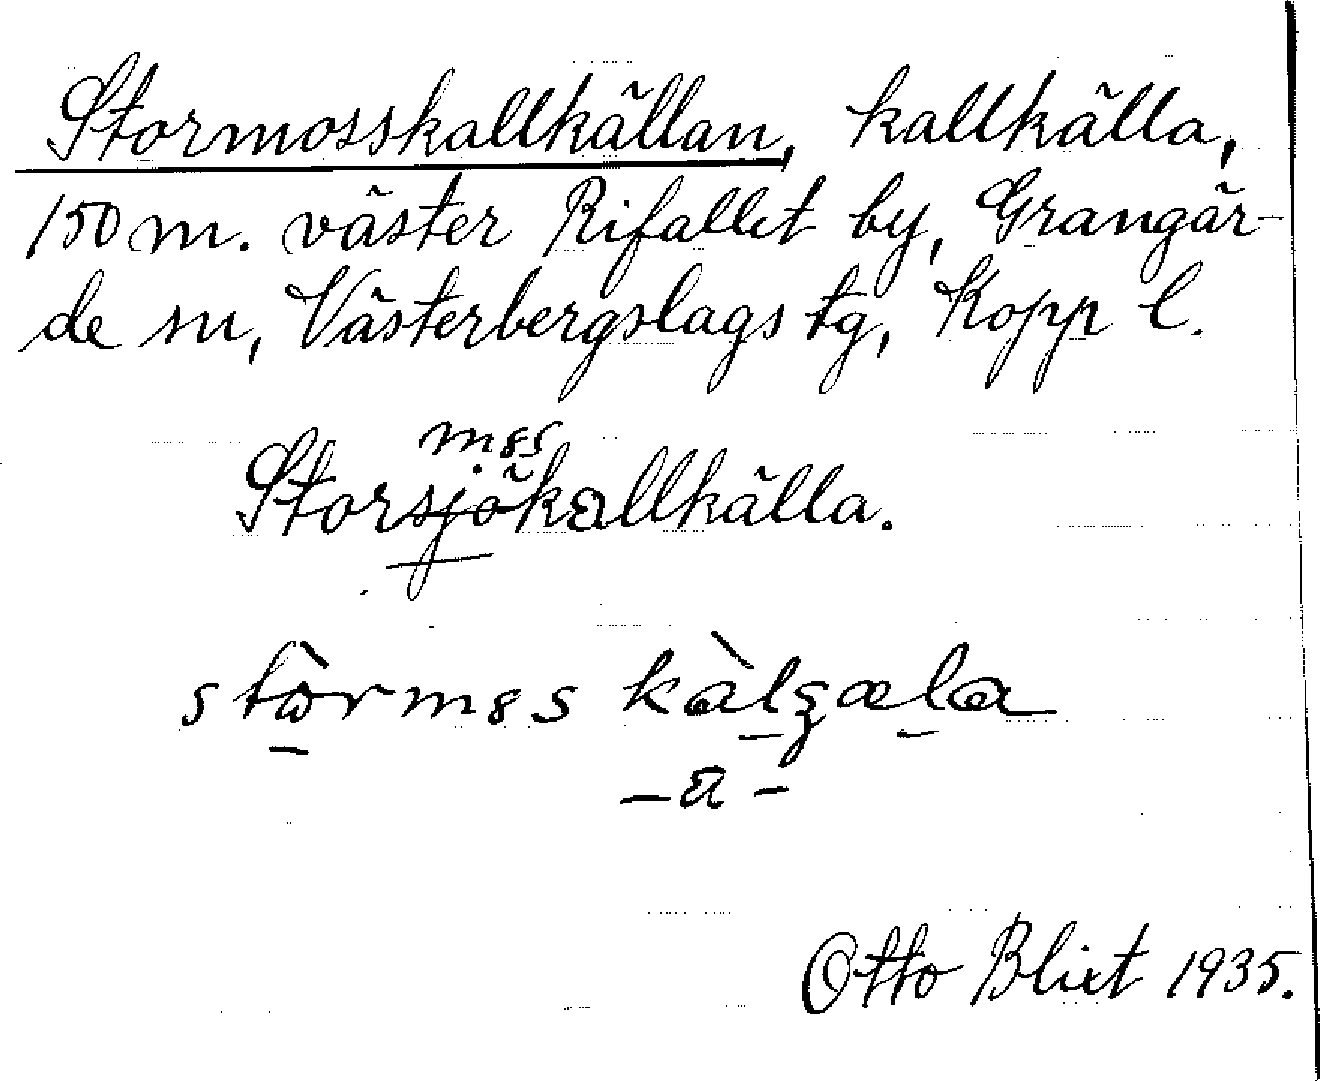 Stormosskallkällan, kallkälla,
150 m. väster Rifallet by, Grangär-
de sn, Västerbergslags tg, Kopp l.
mss
Storsjökallkälla.
Otto Blixt 1935.